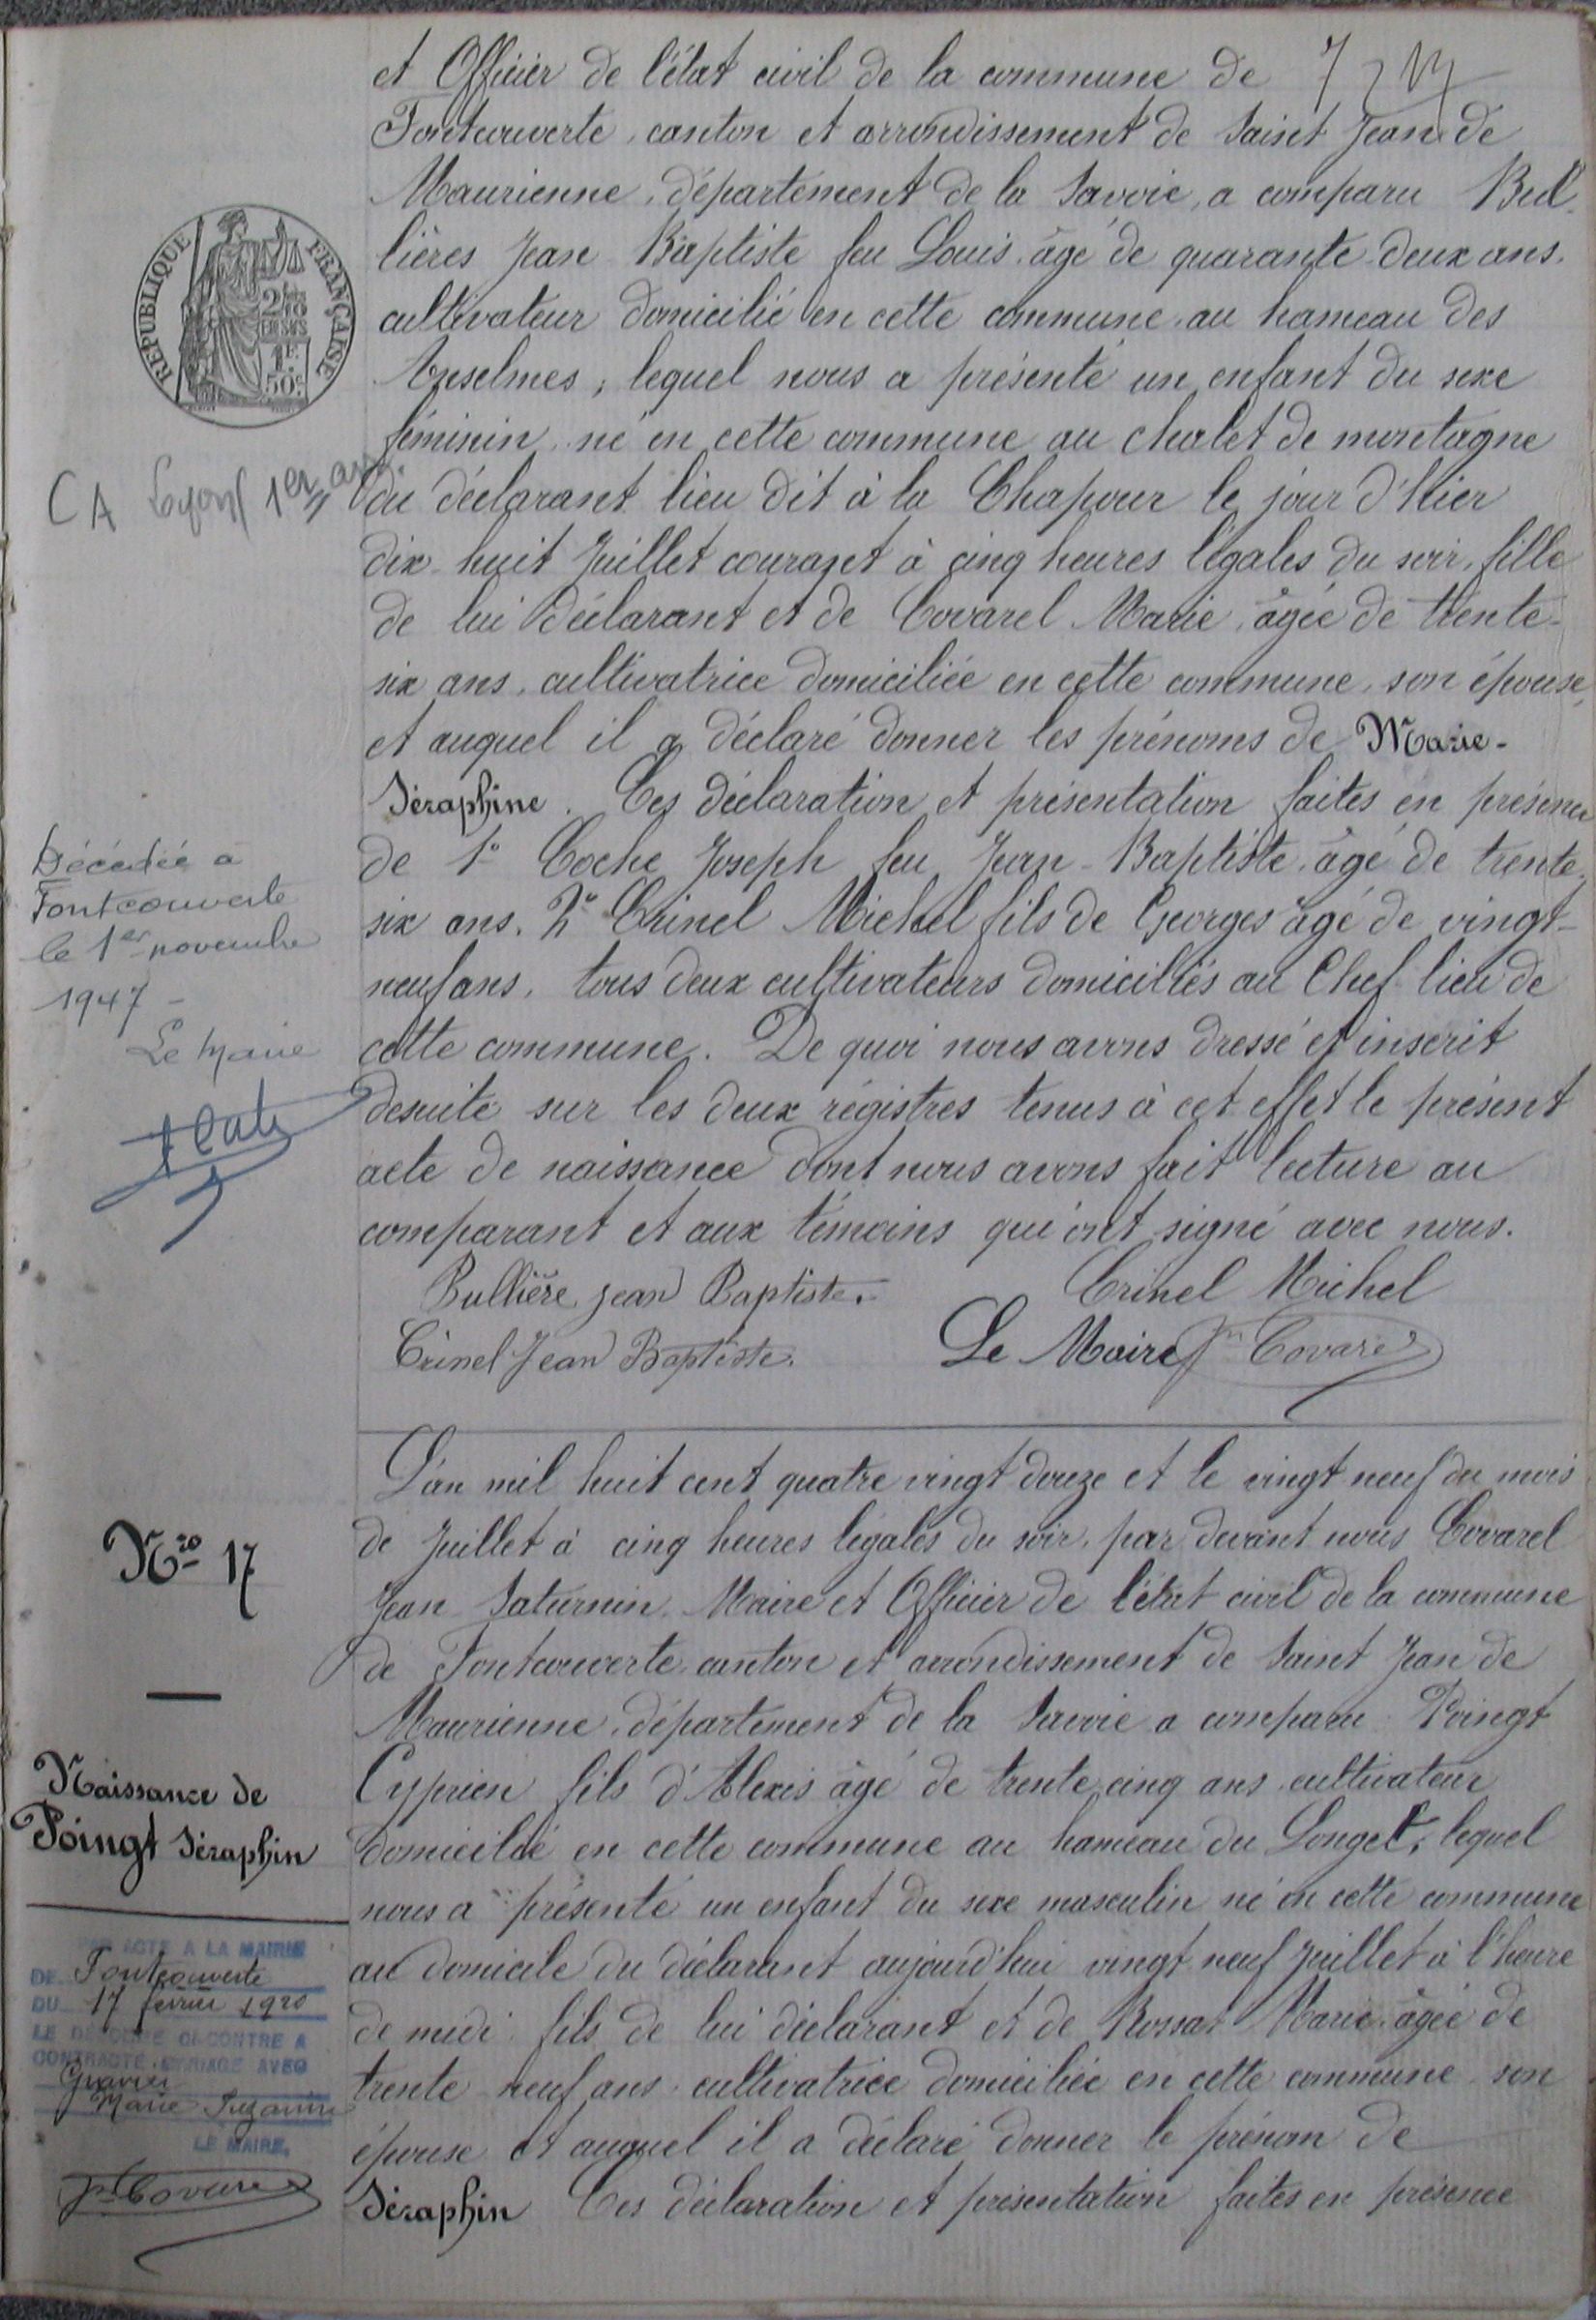 et Officier de l'état civil de la commune de
Fontcouverte, canton et arrondissement de Saint Jean de
Maurienne, département de la Savoie, a comparu Bul-
lières Jean Baptiste feu Louis, âgé de quarante-deux ans,
cultivateur domicilié en cette commune, au hameau des
Anselmes, lequel nous a présenté un enfant du sexe
féminin, né en cette commune au chalet de montagne
du déclarant lieu dit à la Chapour le jour d'hier
dix-huit Juillet courant à cinq heures légales du soir, fille
de lui déclarant et de Covarel Marie, âgée de trente-
six ans, cultivatrice domiciliée en cette commune, son épouse,
et auquel il a déclaré donner les prénoms de Marie-
Séraphine. Ces déclaration et présentation faites en présence
de 1° Coche Joseph feu Jean-Baptiste, âgé de trente-
six ans, 2° Crinel Michel fils de Georges âgé de vingt-
neuf ans, tous deux cultivateurs domiciliés au Chef-lieu de
cette commune. De quoi nous avons dressé et inscrit
desuite sur les deux régistres tenus à cet effet le présent
acte de naissance dont nous avons fait lecture au
comparant et aux témoins qui ont signé avec nous.
Bullière Jean Baptiste.
Crinel Michel
Crinel Jean Baptiste.
Le Maire Jn Covarel
REPUBLIQUE FRANÇAISE
2/10es
EN SUS
1F.
50c.
CA Lyon 1er arr.
Décédée à
Fontcouverte
le 1er novembre
1947 -
Le Maire
Nro 17
Naissance de
Poingt Séraphin
PAR ACTE A LA MAIRIE
DE Fontcouverte
DU 17 février 1920
LE DENOMME CI-CONTRE A
CONTRACTÉ MARIAGE AVEC
Gravier
Marie Suzanne
LE MAIRE,
Jn Covarel
L'an mil huit cent quatre vingt douze et le vingt neuf du mois
de Juillet à cinq heures légales du soir, par devant nous Covarel
Jean Saturnin, Maire et Officier de l'état civil de la commune
de Fontcouverte, canton et arrondissement de Saint Jean de
Maurienne, département de la Savoie a comparu Poingt
Cyprien fils d'Alexis âgé de trente cinq ans, cultivateur
domicilié en cette commune au hameau du Longet, lequel
nous a présenté un enfant du sexe masculin né en cette commune
au domicile du déclarant aujourd'hui vingt neuf Juillet à l'heure
de midi, fils de lui déclarant et de Rossat Marie, âgée de
trente-neuf ans, cultivatrice domiciliée en cette commune son
épouse et auquel il a déclaré donner le prénom de
Séraphin Ces déclaration et présentation faites en présence